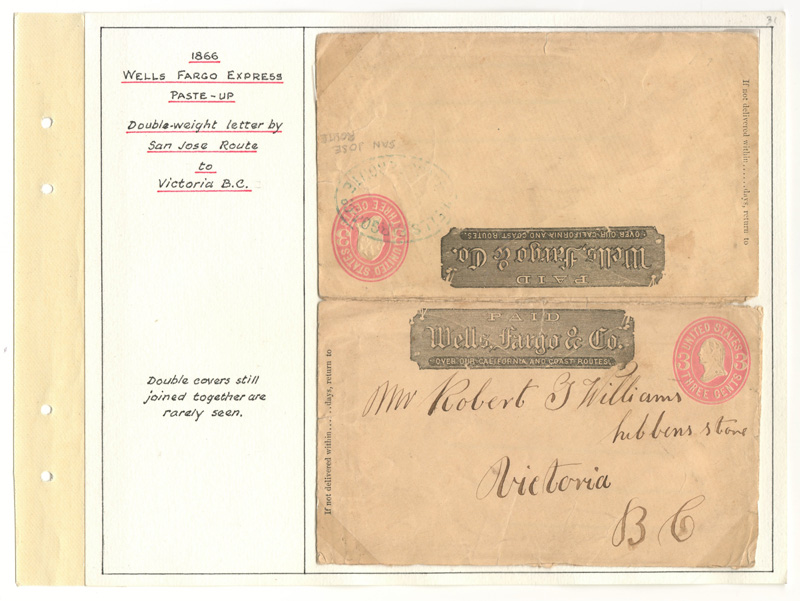 1866
WELLS FARGO EXPRESS
PASTE-UP
Double-weight letter by
San Jose Route
to
Victoria B.C.
Double covers still
joined together are
rarely seen.
If not delivered within......days, return to
SAN JOSE
ROUTE
UNITED STATES
THREE CENTS
PAID
Wells, Fargo & Co.
OVER OUR CALIFORNIA AND COAST ROUTES.
PAID
Wells, Fargo & Co.
OVER OUR CALIFORNIA AND COAST ROUTES.
UNITED STATES
THREE CENTS
If not delivered within......days, return to
Mr Robert J Williams
hibbens stone
Victoria
B C